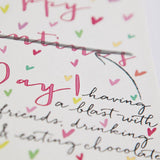 Day!
having
a blast with
friends, drinking
& eating chocola